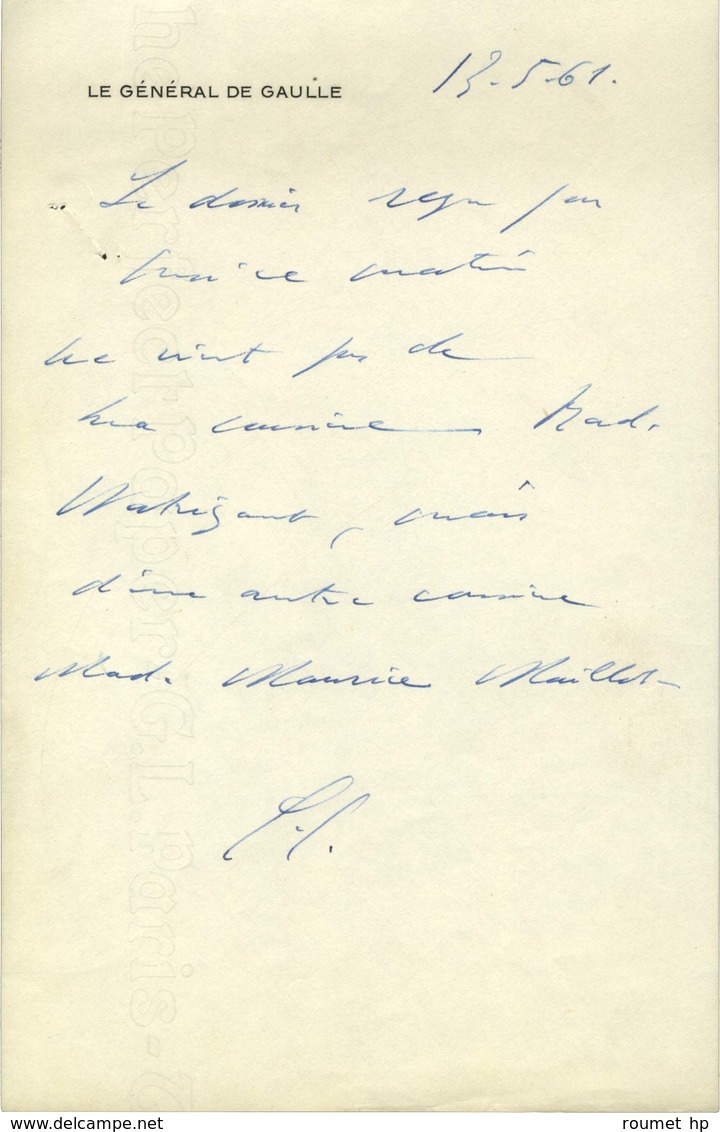 LE GÉNÉRAL DE GAULLE
13.5.61.
Le dossier reçu par
moi ce matin
ne vient pas de
ma cousine Mad.
Watrigant, mais
d'une autre cousine
Mad. Maurice Maillot
the perfect paper G.L. Paris
roumet hp